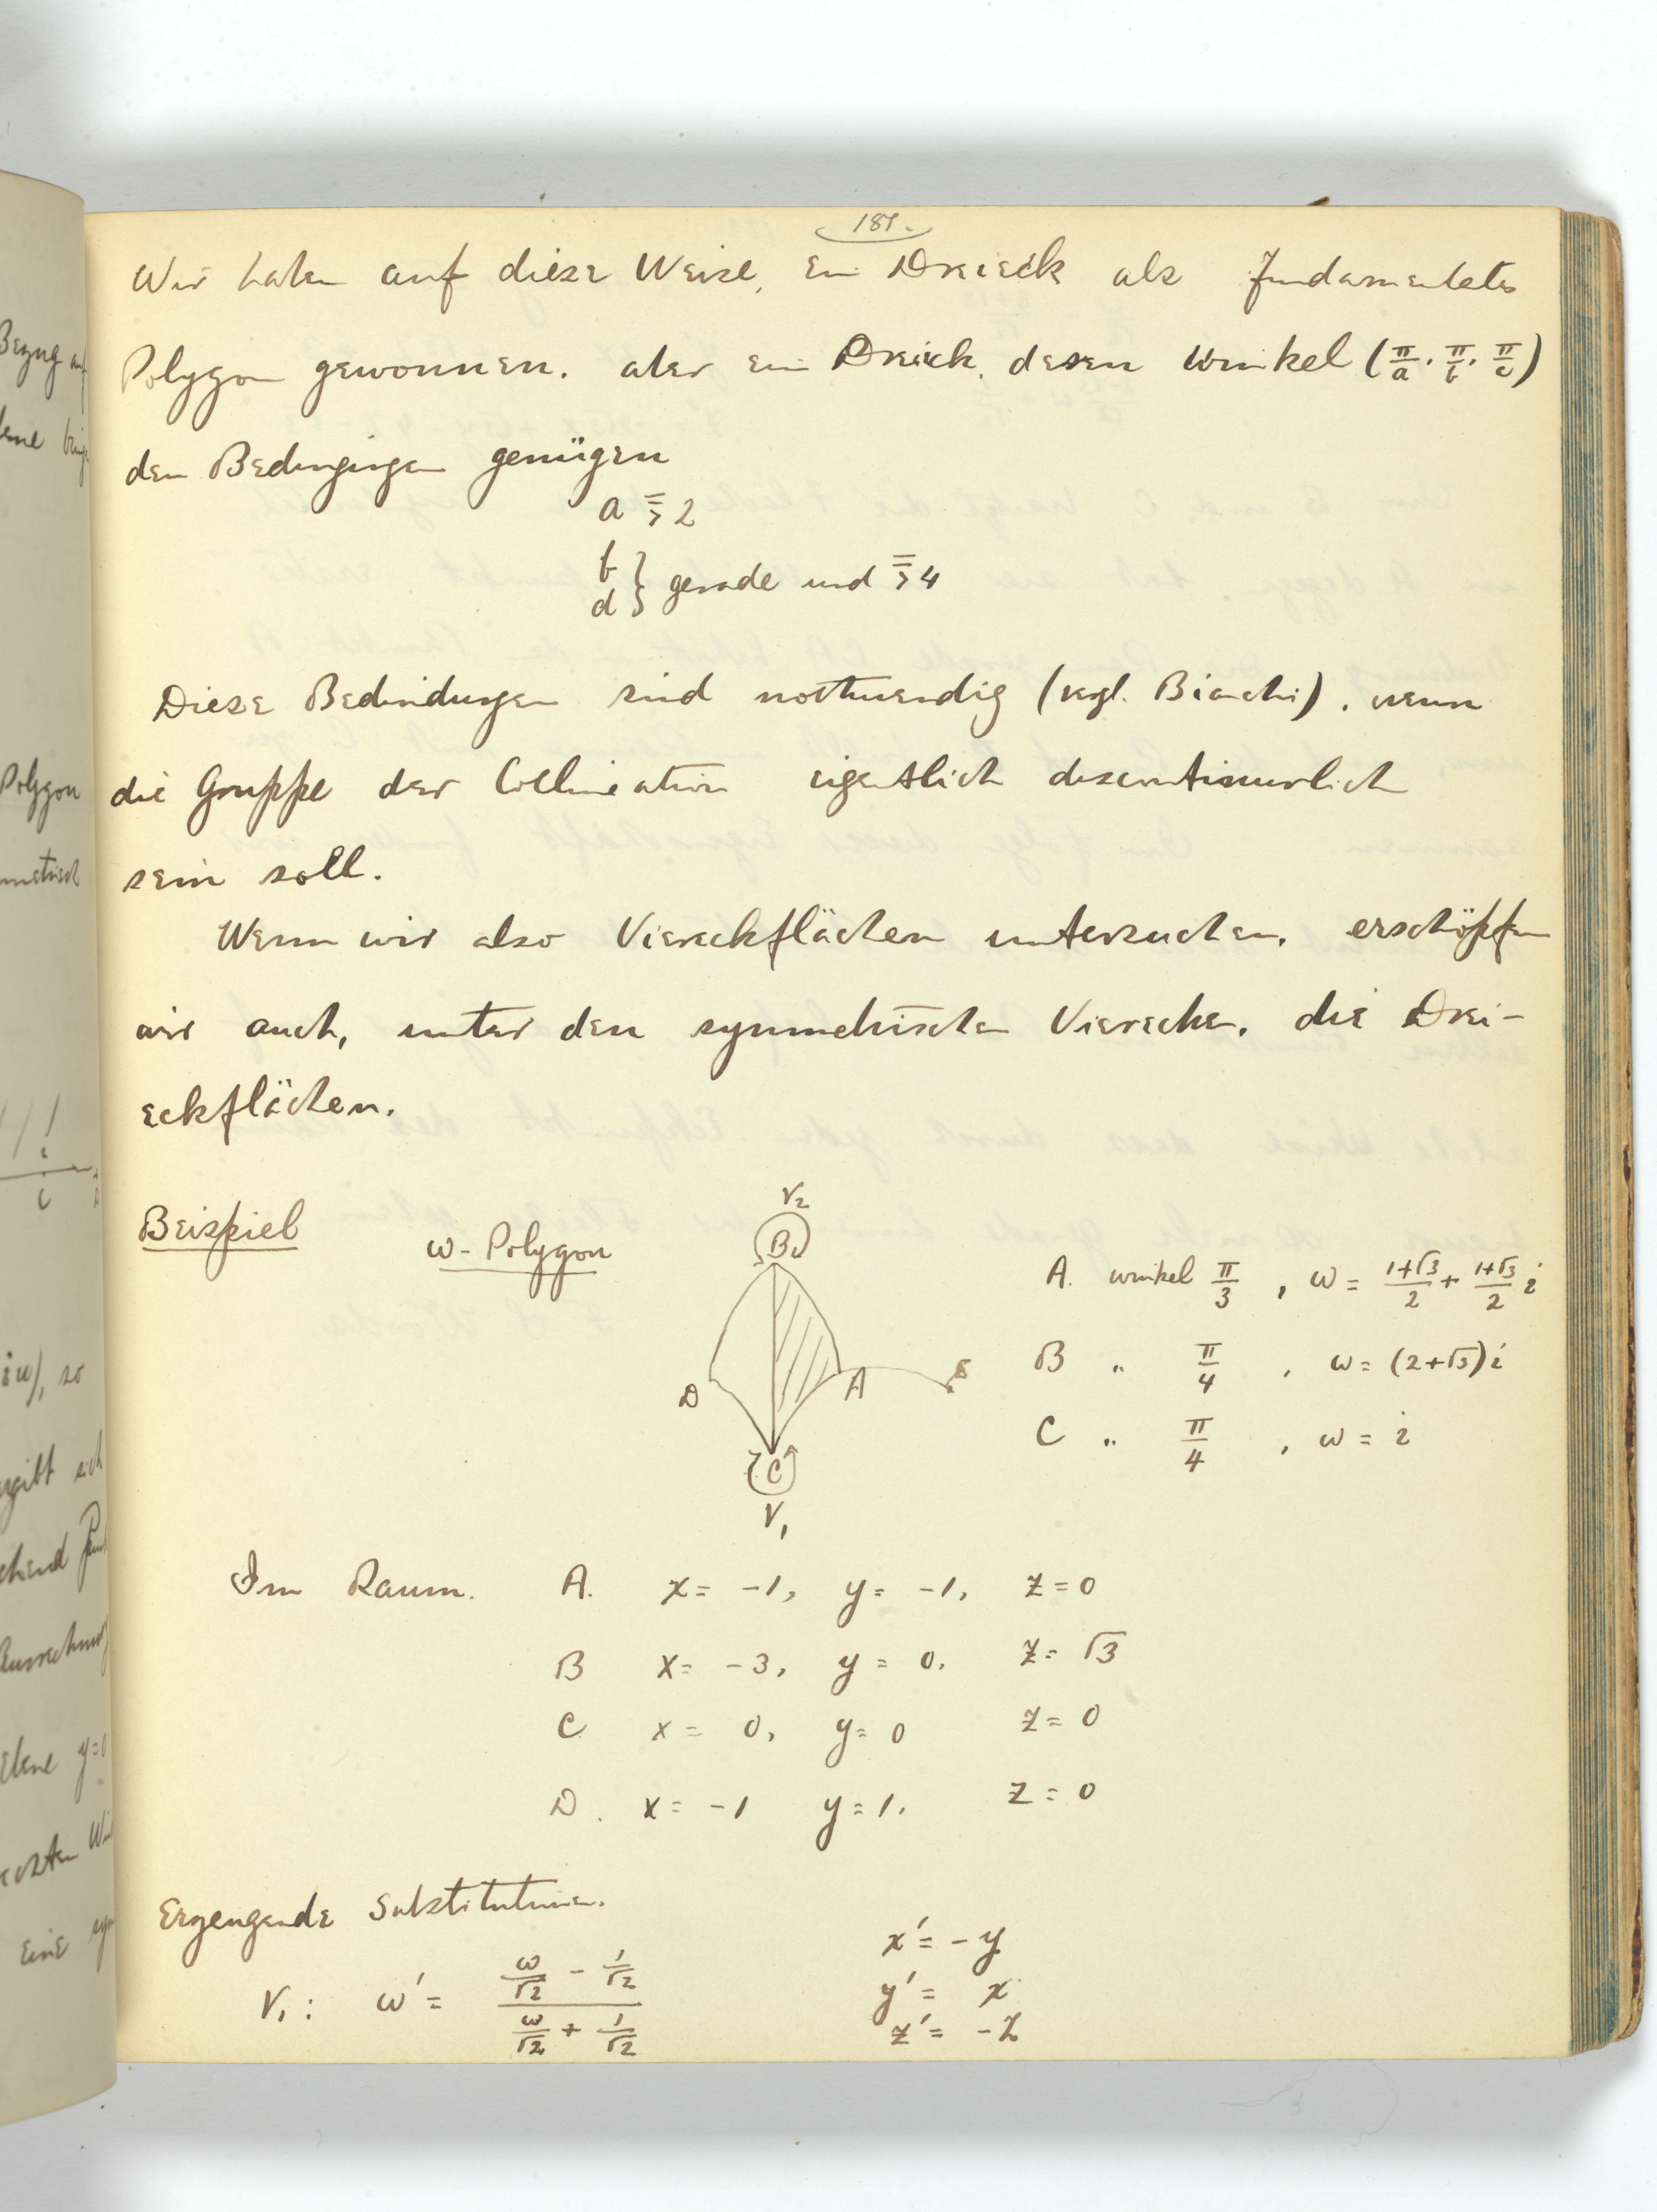 181.
Wir haben auf diese Weise, ein Dreieck als fundamentales
Polygon gewonnen. aber ein Dreieck, dessen Winkel (π/a, π/b, π/c)
den Bedingungen genügen
a ⋝ 2
b } gerade und ⋝ 4
d
Diese Bedindungen sind nothwendig (vgl. Bianchi), wenn
die Gruppe der Collineation eigentlich discontinuirlich
sein soll.
Wenn wir also Viereckflächen untersuchen, erschöpfen
wir auch, unter den symmetrischen Vierecken, die Drei-
eckflächen.
Beispiel
ω-Polygon
V₂
B
D
A
C
V₁
A. winkel π/3 , ω = (1+√3)/2 + (1+√3)/2 i
B „ π/4 , ω = (2+√3)i
C „ π/4 , ω = i
Im Raum. A. x = -1, y = -1, z = 0
B x = -3, y = 0, z = √3
C x = 0, y = 0 z = 0
D. x = -1 y = 1, z = 0
Erzeugende Substitutionen.
V₁ : ω' = (ω/√2 - 1/√2)/(ω/√2 + 1/√2)
x' = -y
y' = x
z' = -z
Bezug auf
Polygon
iω), so
ergibt sich
Ebene y=0
eine